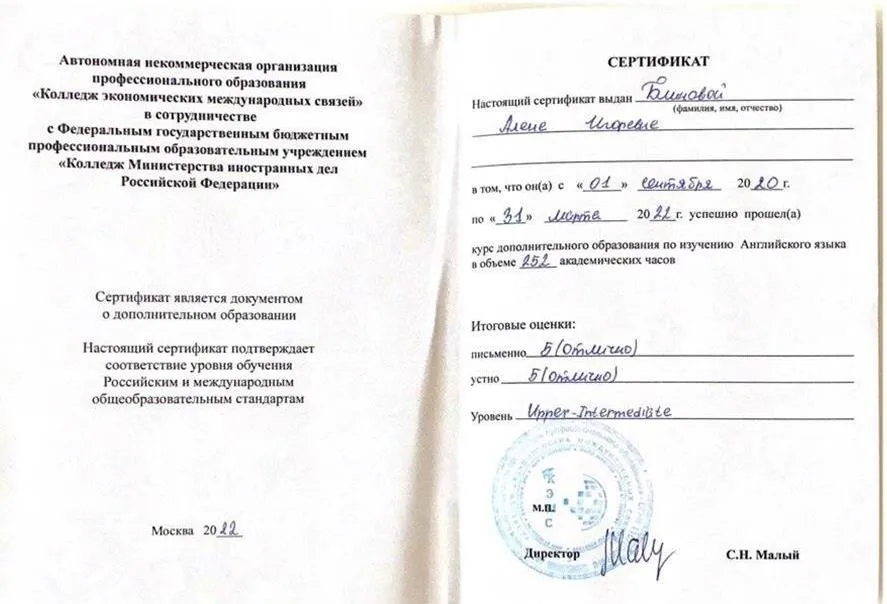 Автономная некоммерческая организация
профессионального образования
«Колледж экономических международных связей»
в сотрудничестве
с Федеральным государственным бюджетным
профессиональным образовательным учреждением
«Колледж Министерства иностранных дел
Российской Федерации»
Сертификат является документом
о дополнительном образовании
Настоящий сертификат подтверждает
соответствие уровня обучения
Российским и международным
общеобразовательным стандартам
Москва 2022
СЕРТИФИКАТ
Настоящий сертификат выдан Блиновой
(фамилия, имя, отчество)
Алене Игоревне
в том, что он(а) с «01» сентября 2020г.
по «31» марта 2022г. успешно прошел(а)
курс дополнительного образования по изучению Английского языка
в объеме 252 академических часов
Итоговые оценки:
письменно 5 (отлично)
устно 5 (отлично)
Уровень Upper-Intermediate
К
Э
М.П.
С
Директор С.Н. Малый